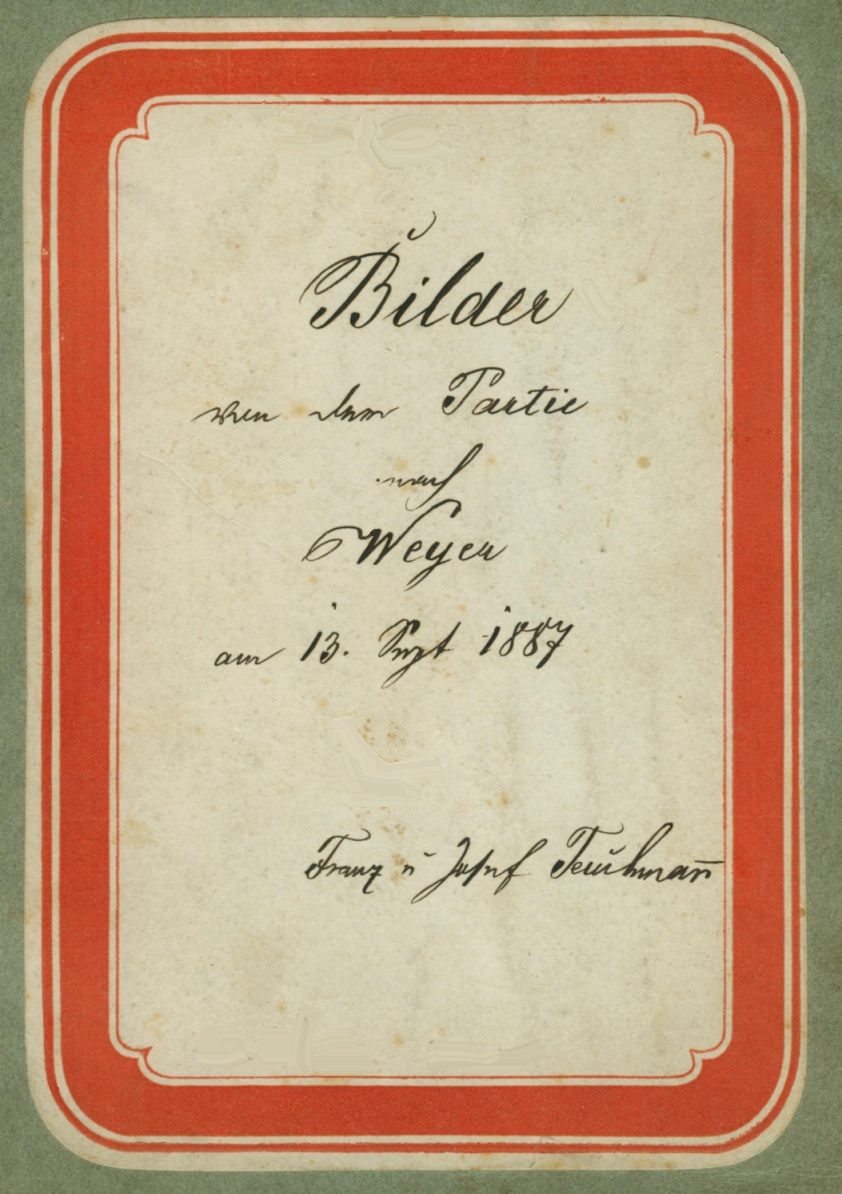 Bilder
von dem Partie
nach
Weyer
am 13. Sept 1887
Franz u Josef